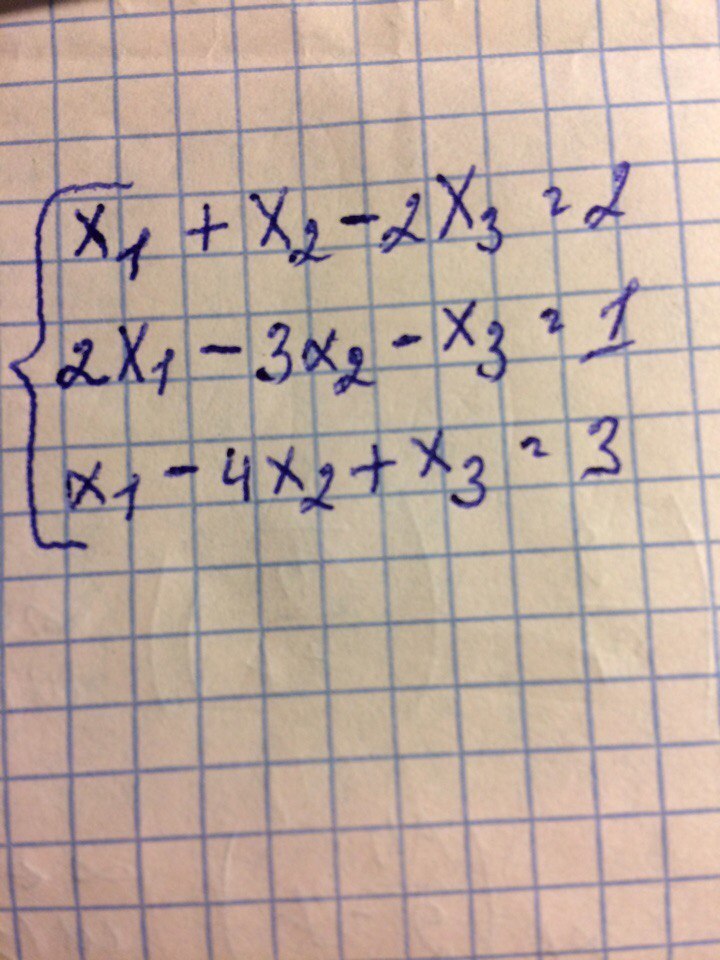 x₁ + x₂ - 2x₃ = 2
2x₁ - 3x₂ - x₃ = 1
x₁ - 4x₂ + x₃ = 3